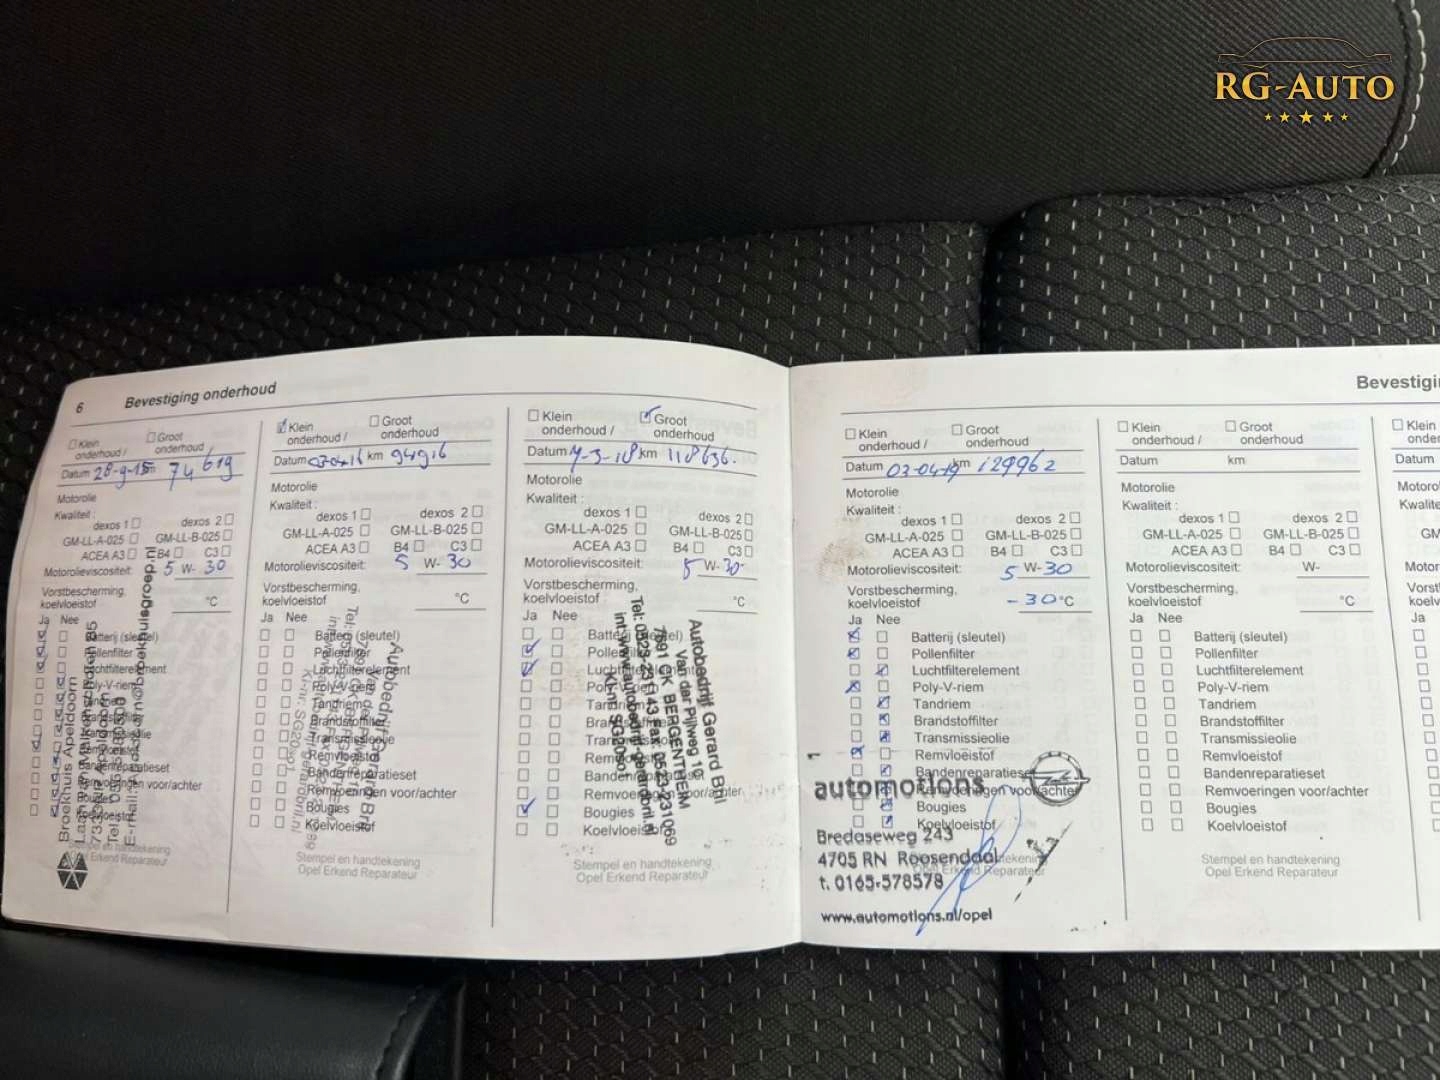 RG-AUTO
6 Bevestiging onderhoud
Klein onderhoud / Groot onderhoud
Datum 28-9-15 km 74619
Motorolie
Kwaliteit :
dexos 1 dexos 2
GM-LL-A-025 GM-LL-B-025
ACEA A3 B4 C3
Motorolieviscositeit: 5 W- 30
Vorstbescherming,
koelvloeistof °C
Ja Nee
Batterij (sleutel)
Pollenfilter
Luchtfilterelement
Poly-V-riem
Bandenreparatieset
Remvoeringen voor/achter
Broekhuis Apeldoorn
Stempel en handtekening
Opel Erkend Reparateur
Klein onderhoud / Groot onderhoud
Datum 07-04-16 km 94916
Motorolie
Kwaliteit :
dexos 1 dexos 2
GM-LL-A-025 GM-LL-B-025
ACEA A3 B4 C3
Motorolieviscositeit: 5 W- 30
Vorstbescherming,
koelvloeistof °C
Ja Nee
Batterij (sleutel)
Pollenfilter
Luchtfilterelement
Poly-V-riem
Tandriem
Brandstoffilter
Transmissieolie
Remvloeistof
Bandenreparatieset
Remvoeringen voor/achter
Bougies
Koelvloeistof
Stempel en handtekening
Opel Erkend Reparateur
Klein onderhoud / Groot onderhoud
Datum 7-3-18 km 118636.
Motorolie
Kwaliteit :
dexos 1 dexos 2
GM-LL-A-025 GM-LL-B-025
ACEA A3 B4 C3
Motorolieviscositeit: 5 W- 30
Vorstbescherming,
koelvloeistof °C
Ja Nee
Bougies
Koelvloeistof
Autobedrijf Gerard Bril
Van der Pijlweg 10
7691 CK BERGENTHEIM
Tel: 0523-231143 Fax: 0523-231069
Stempel en handtekening
Opel Erkend Reparateur
Bevestigi
Klein onderhoud / Groot onderhoud
Datum 03-04-19 km 129962
Motorolie
Kwaliteit :
dexos 1 dexos 2
GM-LL-A-025 GM-LL-B-025
ACEA A3 B4 C3
Motorolieviscositeit: 5 W-30
Vorstbescherming,
koelvloeistof -30 °C
Ja Nee
Batterij (sleutel)
Pollenfilter
Luchtfilterelement
Poly-V-riem
Tandriem
Brandstoffilter
Transmissieolie
Remvloeistof
Bandenreparatieset
Remvoeringen voor/achter
Bougies
Koelvloeistof
automotions
Bredaseweg 243
4705 RN Roosendaal
t. 0165-578578
www.automotions.nl/opel
Opel Erkend Reparateur
Klein onderhoud / Groot onderhoud
Datum km
Motorolie
Kwaliteit :
dexos 1 dexos 2
GM-LL-A-025 GM-LL-B-025
ACEA A3 B4 C3
Motorolieviscositeit: W-
Vorstbescherming,
koelvloeistof °C
Ja Nee
Batterij (sleutel)
Pollenfilter
Luchtfilterelement
Poly-V-riem
Tandriem
Brandstoffilter
Transmissieolie
Remvloeistof
Bandenreparatieset
Remvoeringen voor/achter
Bougies
Koelvloeistof
Stempel en handtekening
Opel Erkend Reparateur
Datum
Ja